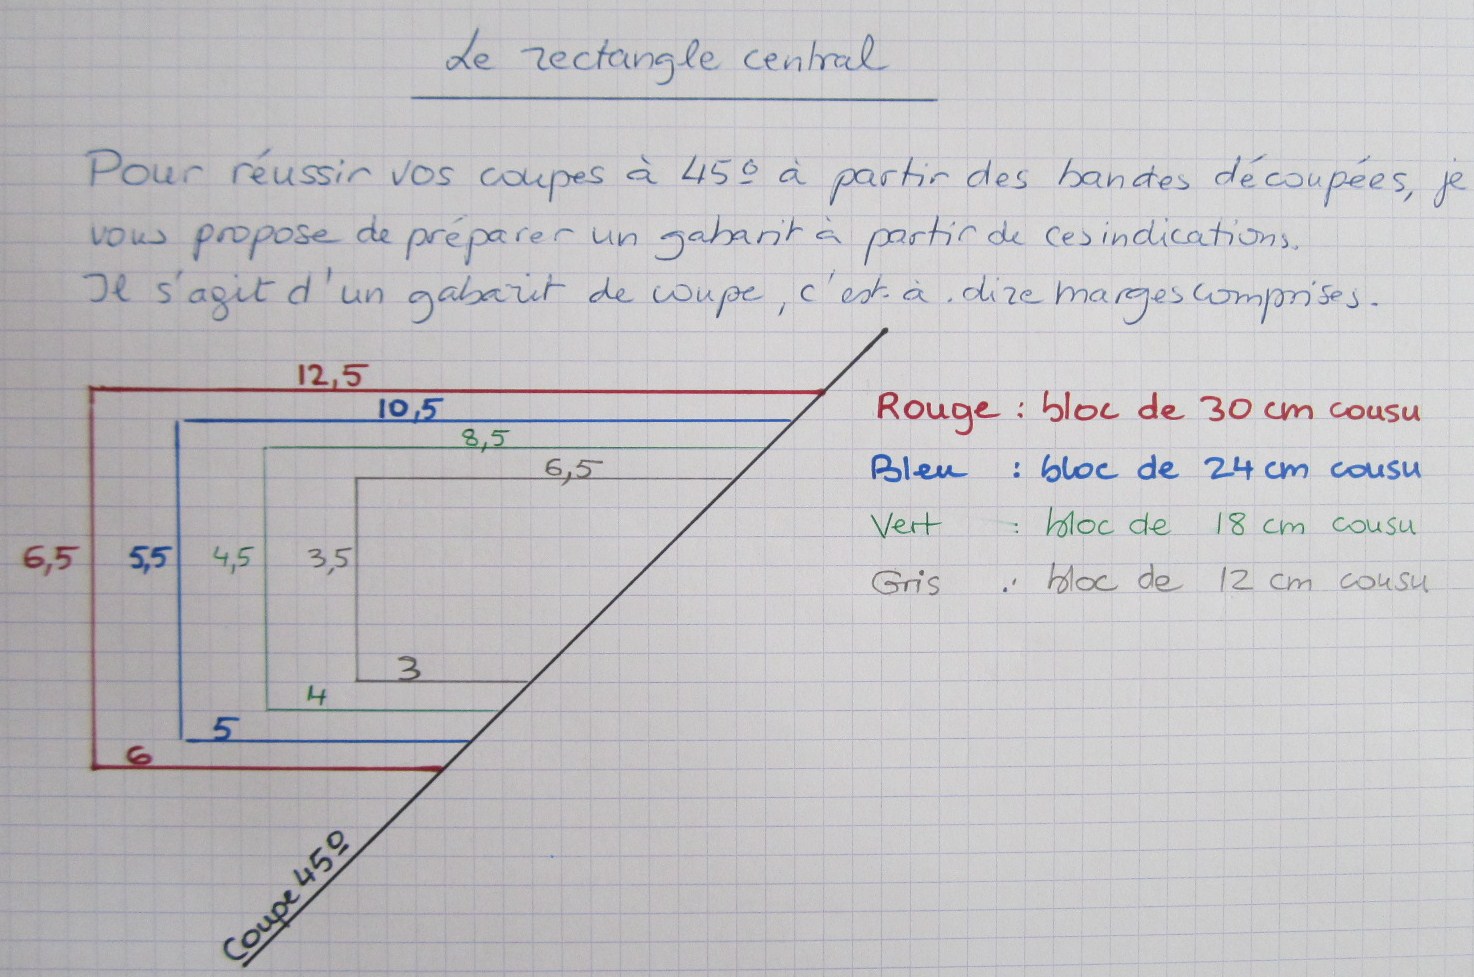 Le rectangle central
Pour réussir vos coupes à 45º à partir des bandes découpées, je
vous propose de préparer un gabarit à partir de ces indications.
Il s'agit d'un gabarit de coupe, c'est-à-dire marges comprises.
12,5
10,5
8,5
6,5
Rouge : bloc de 30 cm cousu
Bleu : bloc de 24 cm cousu
Vert : bloc de 18 cm cousu
Gris : bloc de 12 cm cousu
6,5 5,5 4,5 3,5
3
4
5
6
Coupe 45º